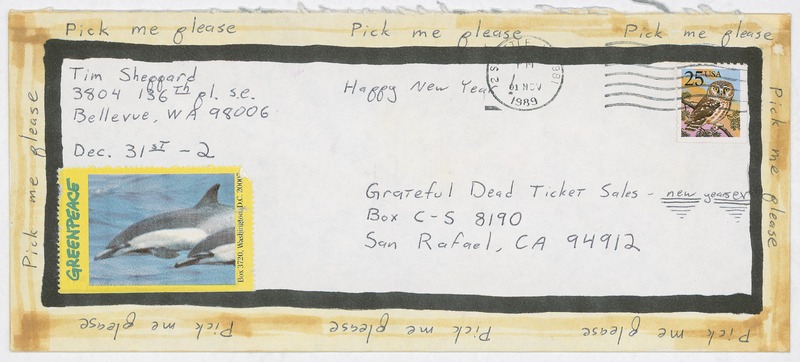 Pick me please
Pick me please
Pick me please
Tim Sheppard
3804 136th pl. s.e.
Bellevue, WA 98006
Dec. 31st - 2
Happy New Year!
PM
01 NOV
1989
25 USA
Grateful Dead Ticket Sales - new years eve
Box C-S 8190
San Rafael, CA 94912
GREENPEACE
Box 3720, Washington, D.C. 2000
Pick me please
Pick me please
Pick me please
Pick me please
Pick me please